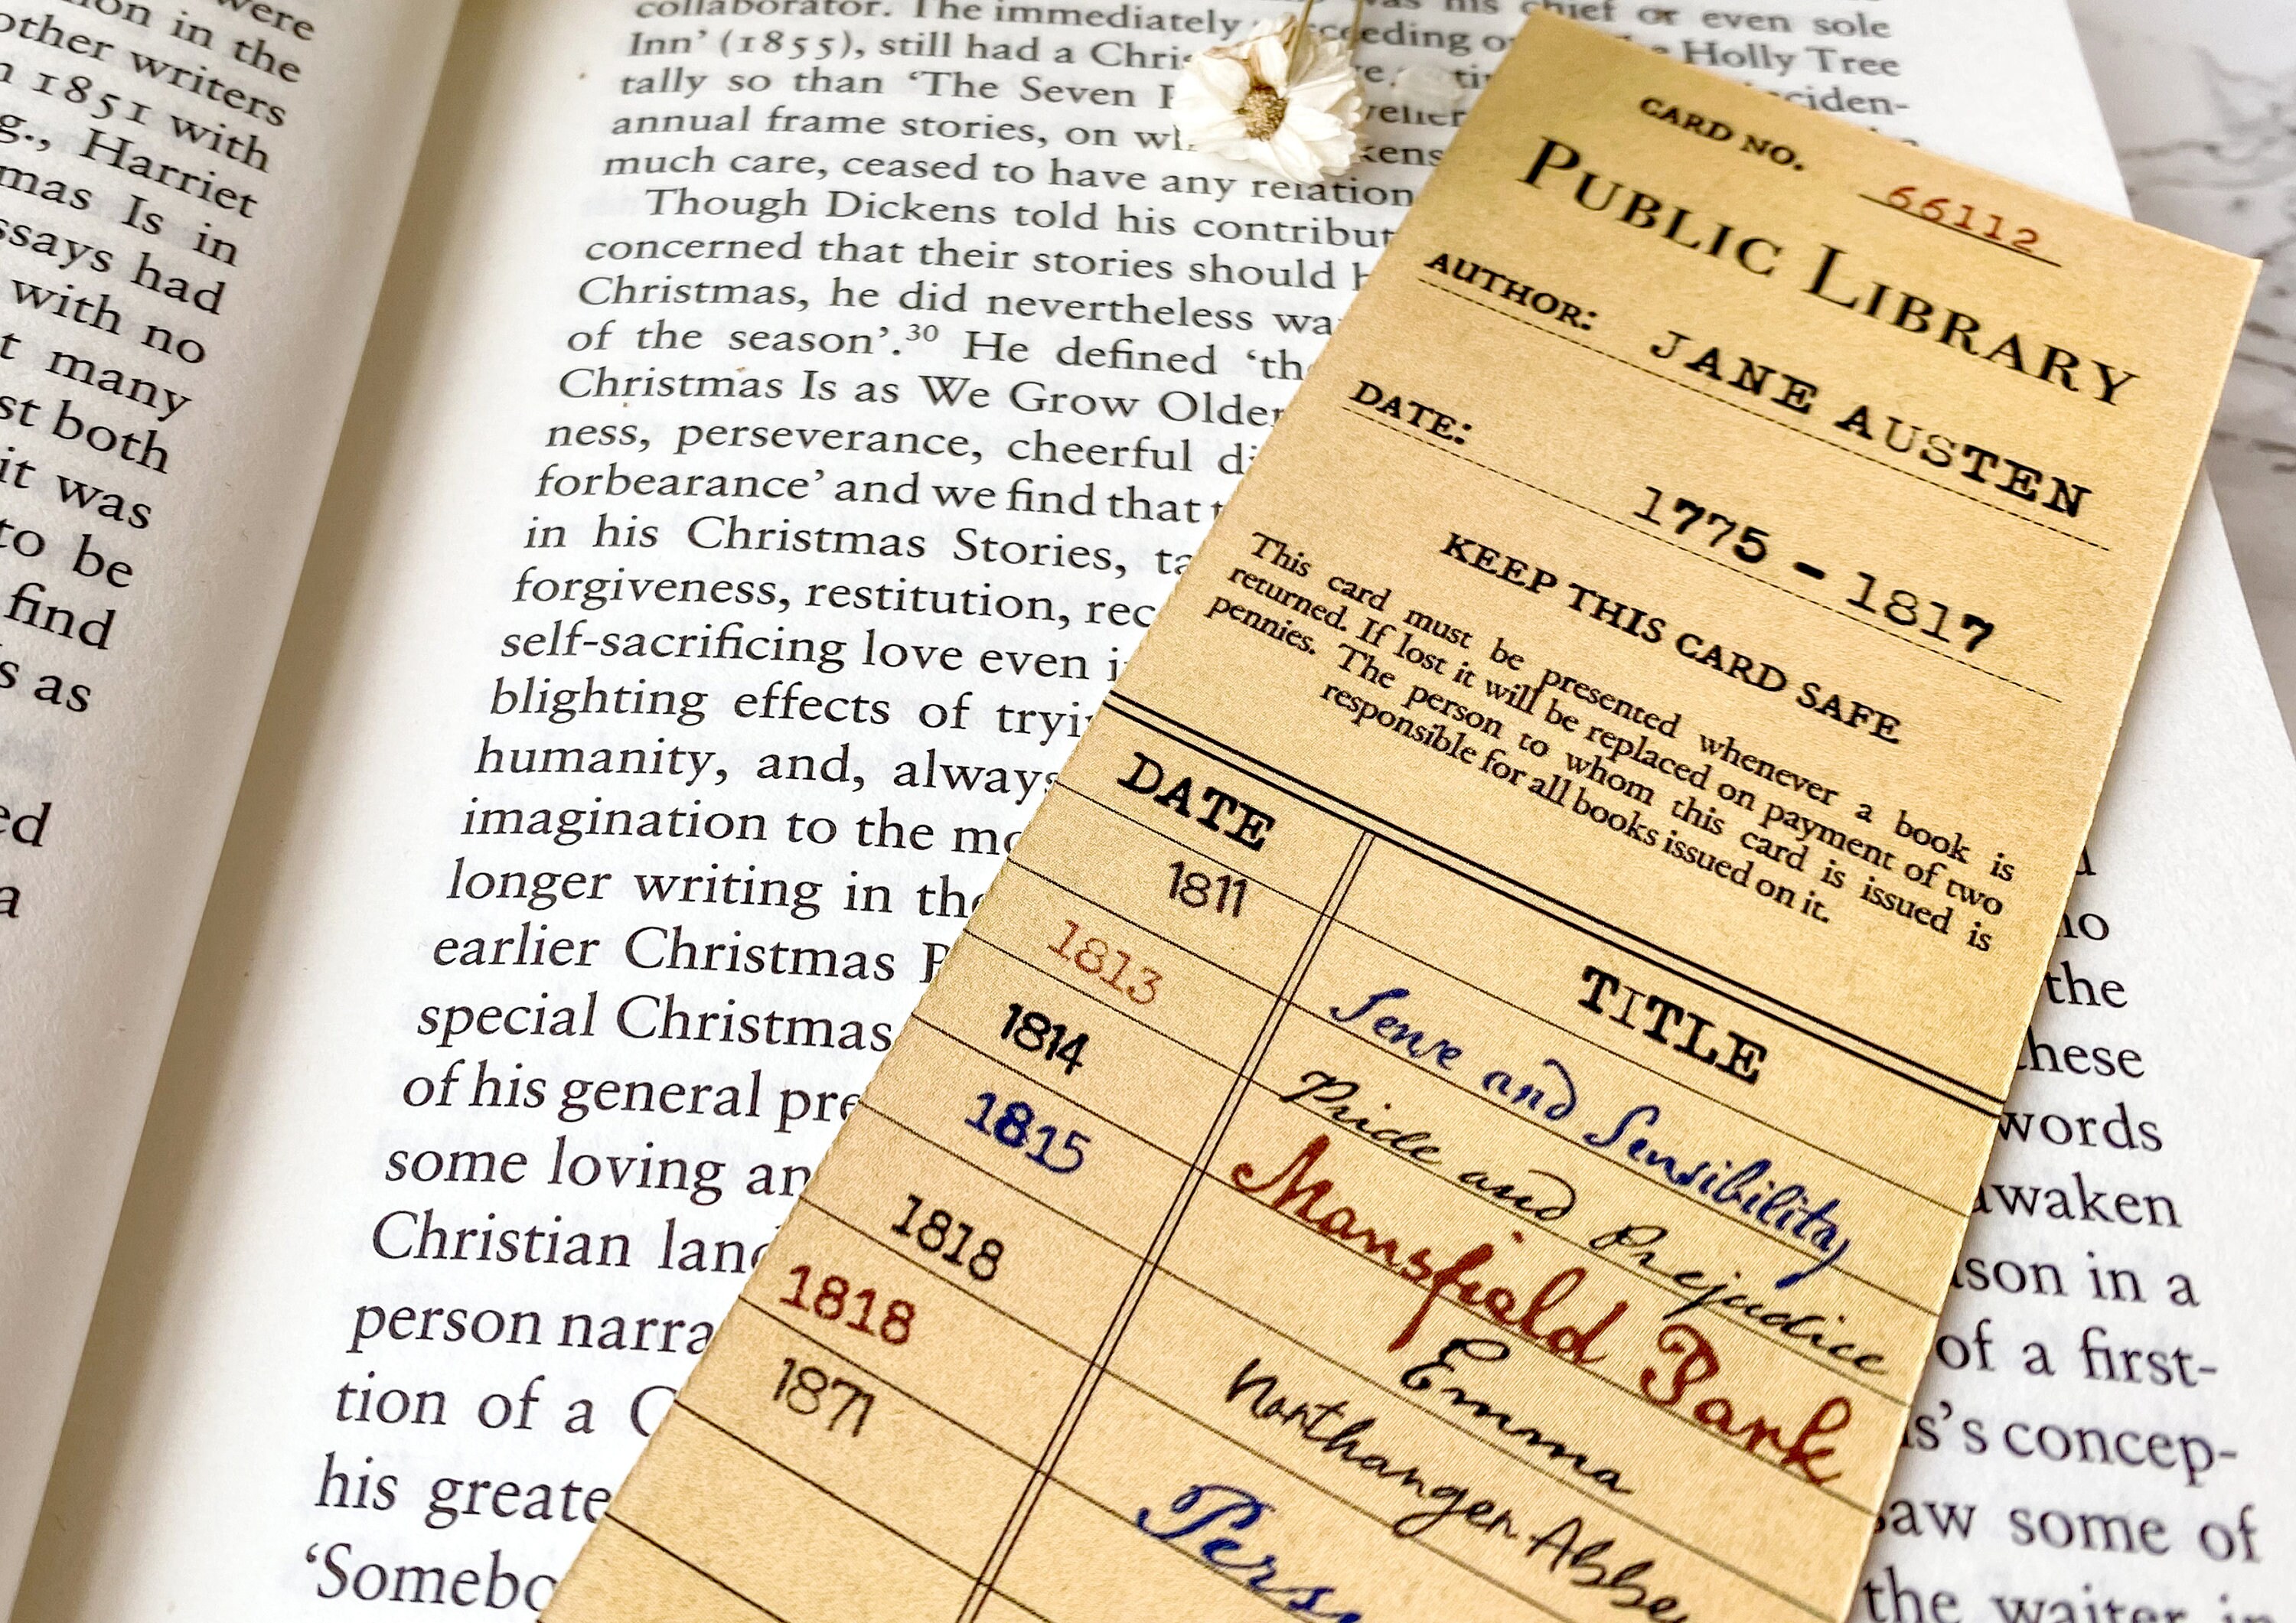 were
on in the
other writers
1851 with
Harriet
mas Is in
ssays had
with no
many
st both
it was
to be
find
s as
ed
a
collaborator. The immediately chief or even sole
Inn’ (1855), still had a Holly Tree
tally so than ‘The Seven
annual frame stories, on
much care, ceased to have any relation
Though Dickens told his
concerned that their stories should
Christmas, he did nevertheless
of the season’.30 He defined
Christmas Is as We Grow Older
ness, perseverance, cheerful
forbearance’ and we find that
in his Christmas Stories,
forgiveness, restitution,
self-sacrificing love even
blighting effects of
humanity, and, always
imagination to the
longer writing in
earlier Christmas
special Christmas
of his general
some loving
Christian
person
tion of a
his
‘Somebo
the
words
awaken
in a
of a first-
concep-
saw some of
the waiter in
CARD NO. 66112
PUBLIC LIBRARY
AUTHOR: JANE AUSTEN
DATE: 1775 - 1817
KEEP THIS CARD SAFE
This card must be presented whenever a book is
returned. If lost it will be replaced on payment of two
pennies. The person to whom this card is issued is
responsible for all books issued on it.
DATE TITLE
1811 Sense and Sensibility
1813 Pride and Prejudice
1814 Mansfield Park
1815 Emma
1818 Northanger Abbe
1818 Pers
1871